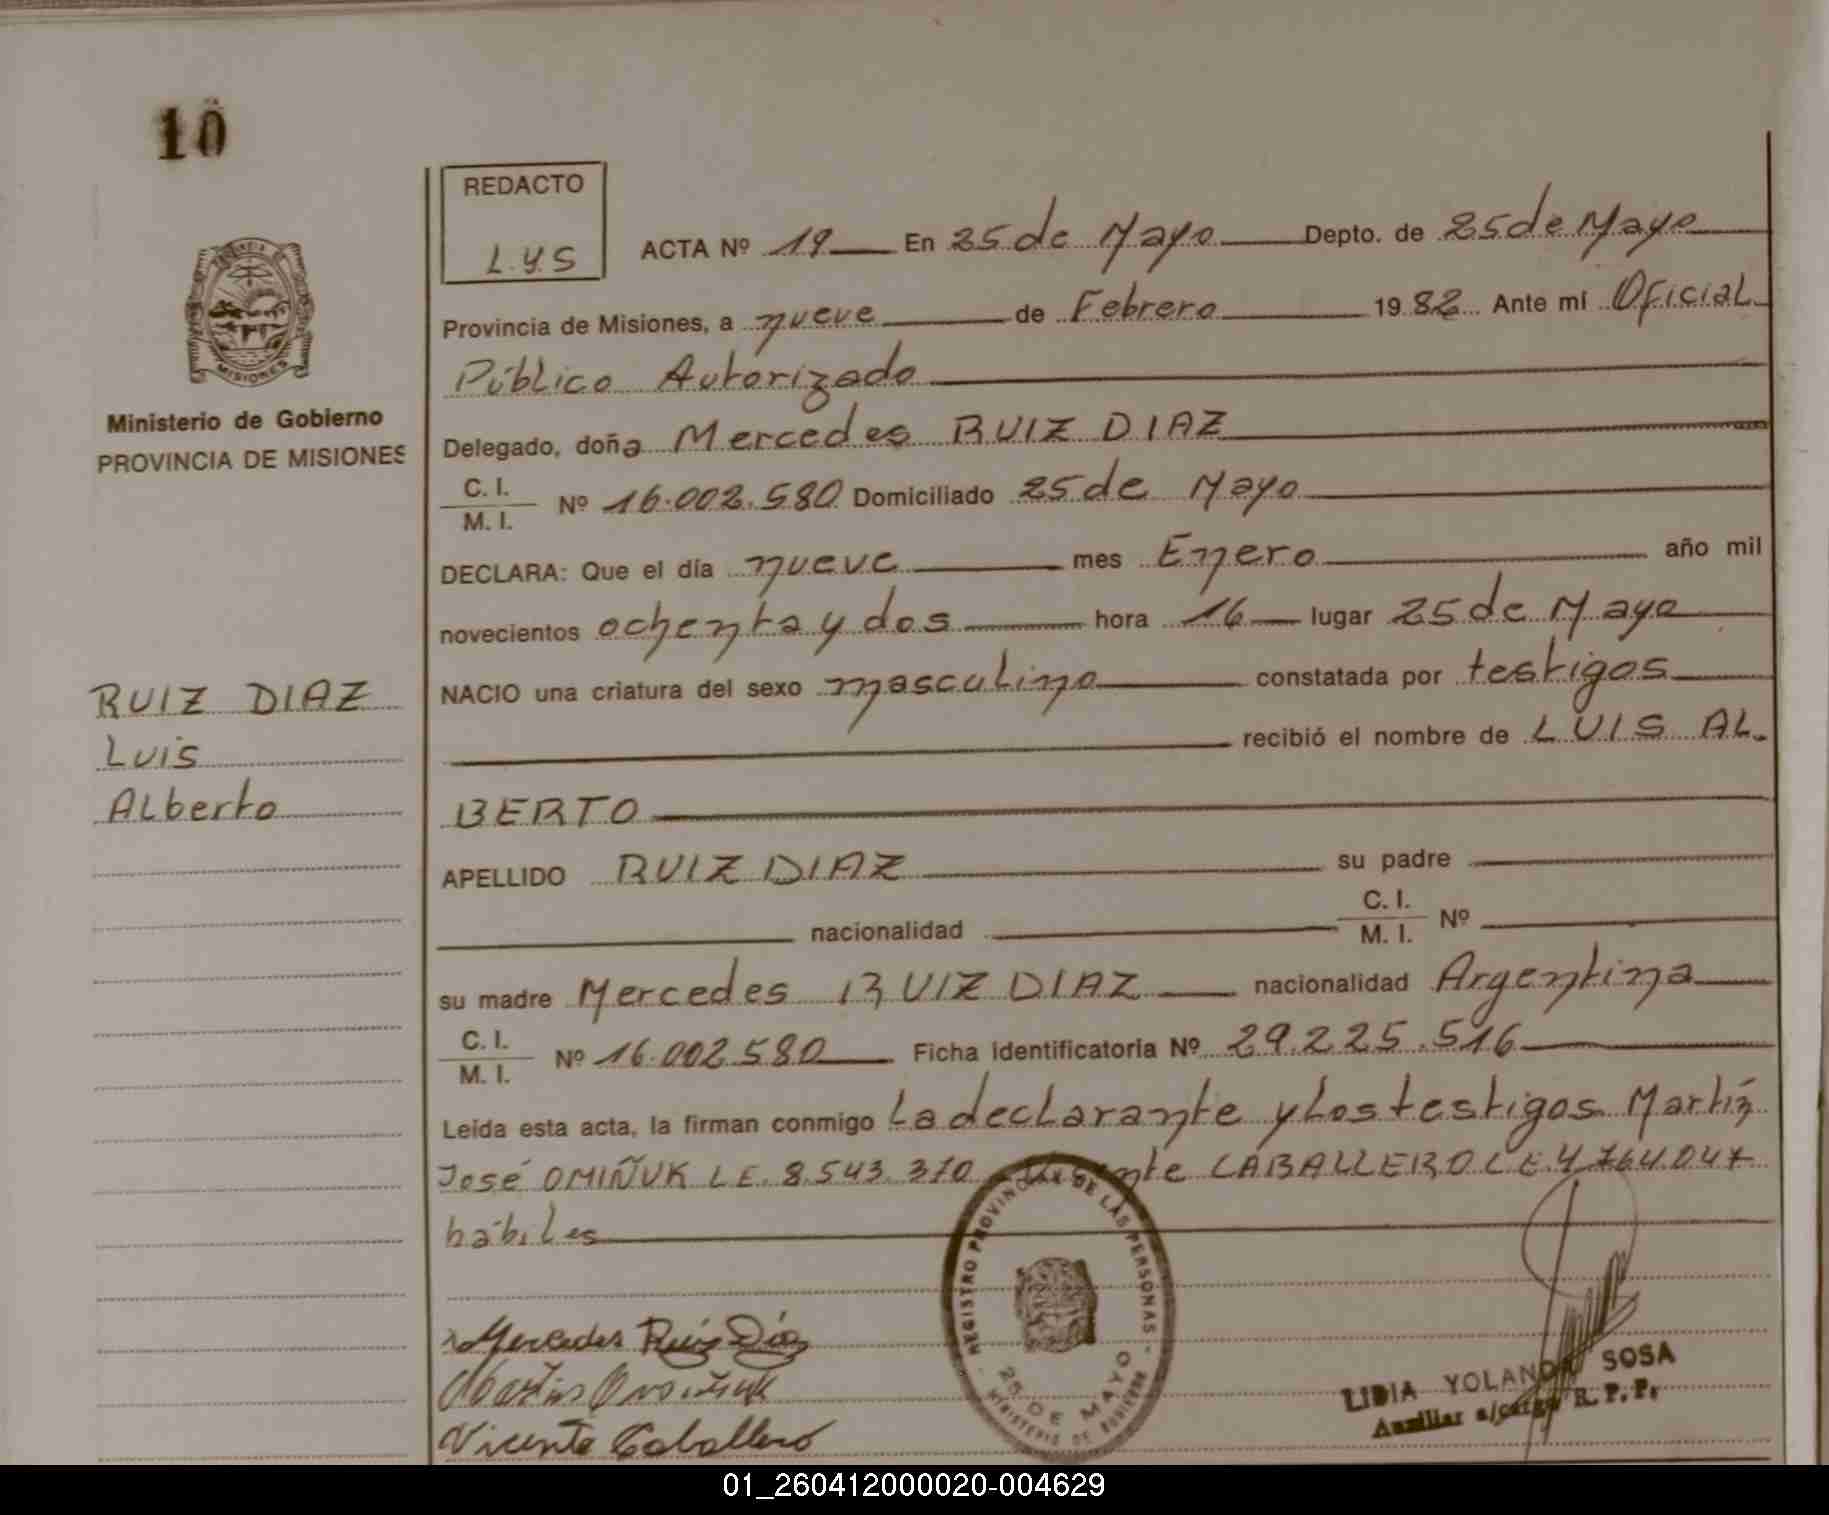 10
REDACTO
L.Y.S
ACTA Nº 19 En 25 de Mayo Depto. de 25 de Mayo
Provincia de Misiones, a nueve de Febrero 1982 Ante mí Oficial
Público Autorizado
MISIONES
Ministerio de Gobierno
PROVINCIA DE MISIONES
Delegado, doña Mercedes RUIZ DIAZ
C. I.
M. I. Nº 16.002.580 Domiciliado 25 de Mayo
DECLARA: Que el día nueve mes Enero año mil
novecientos ochenta y dos hora 16 lugar 25 de Mayo
NACIO una criatura del sexo masculino constatada por testigos
recibió el nombre de LUIS AL-
BERTO
RUIZ DIAZ
Luis
Alberto
APELLIDO RUIZ DIAZ su padre
nacionalidad C. I. M. I. Nº
su madre Mercedes RUIZ DIAZ nacionalidad Argentina
C. I.
M. I. Nº 16.002.580 Ficha identificatoria Nº 29.225.516
Leída esta acta, la firman conmigo La declarante y los testigos Martín
José OMIÑUK L E. 8.543.370 Vicente CABALLERO L E. 4.764.047
hábiles
REGISTRO PROVINCIAL DE LAS PERSONAS
25 DE MAYO
MINISTERIO DE GOBIERNO
Mercedes Ruiz Díaz
Martin Omiñuk
Vicente Caballero
LIDIA YOLANDA SOSA
Auxiliar a/cargo R. P. P.
01_260412000020-004629